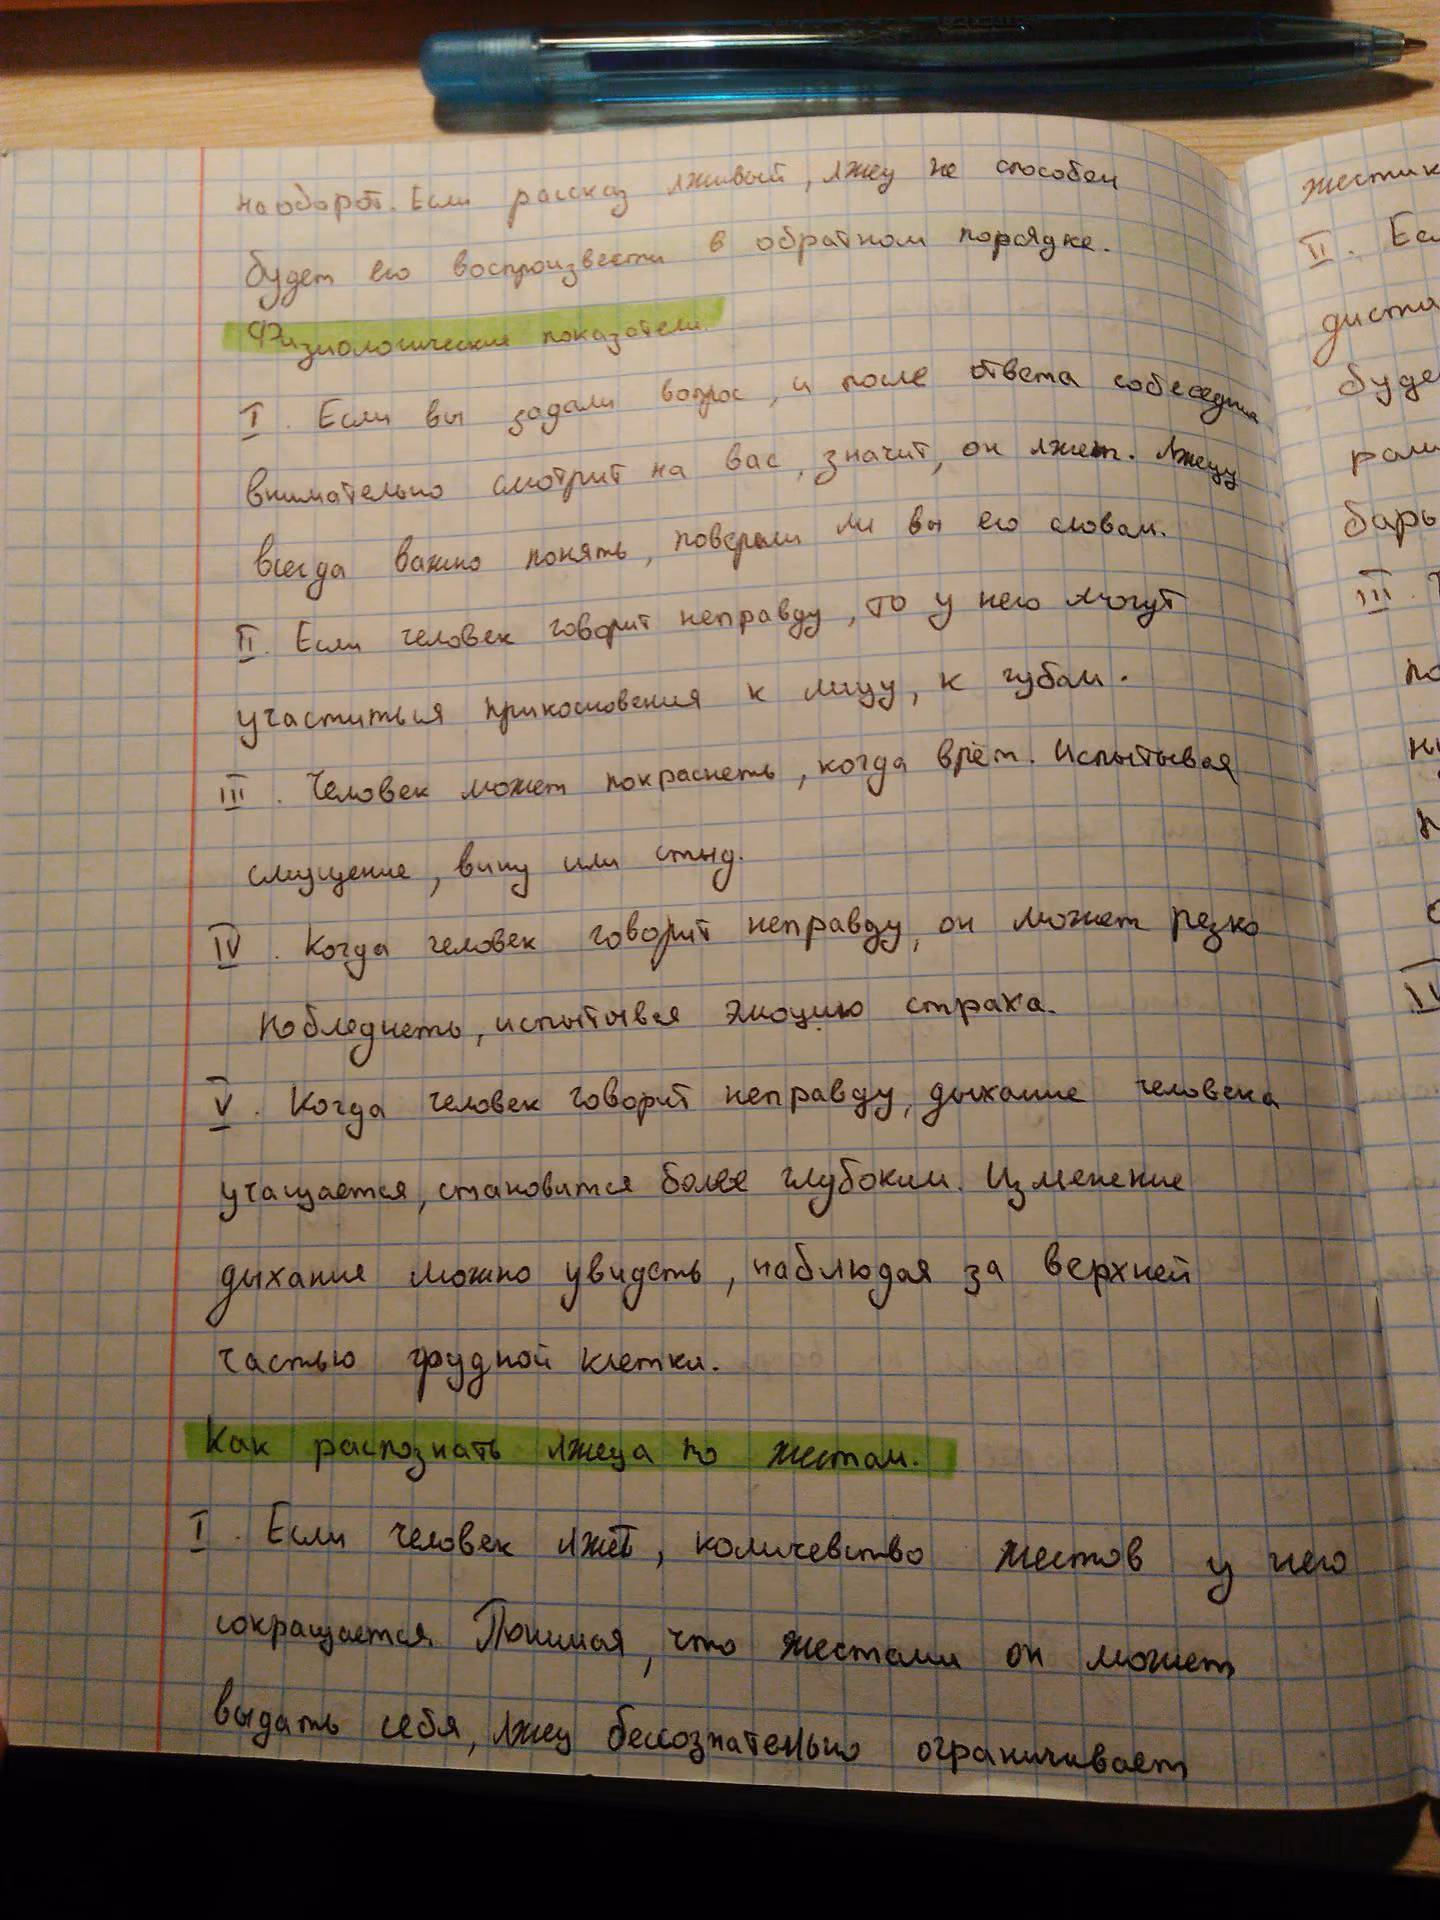 наоборот. Если рассказ лживый, лжец не способен
будет его воспроизвести в обратном порядке.
Физиологические показатели.
I. Если вы задали вопрос, и после ответа собеседник
внимательно смотрит на вас, значит, он лжет. Лжецу
всегда важно понять, поверили ли вы его словам.
II. Если человек говорит неправду, то у него могут
участиться прикосновения к лицу, к губам.
III. Человек может покраснеть, когда врёт. Испытывая
смущение, вину или стыд.
IV. Когда человек говорит неправду, он может резко
побледнеть, испытывая эмоцию страха.
V. Когда человек говорит неправду, дыхание человека
учащается, становится более глубоким. Изменение
дыхания можно увидеть, наблюдая за верхней
частью грудной клетки.
Как распознать лжеца по жестам.
I. Если человек лжет, количевство жестов у него
сокращается. Понимая, что жестами он может
выдать себя, лжец бессознательно ограничивает
жестик
II. Есл
диста
буде
рам
барь
III.
по
ны
IV